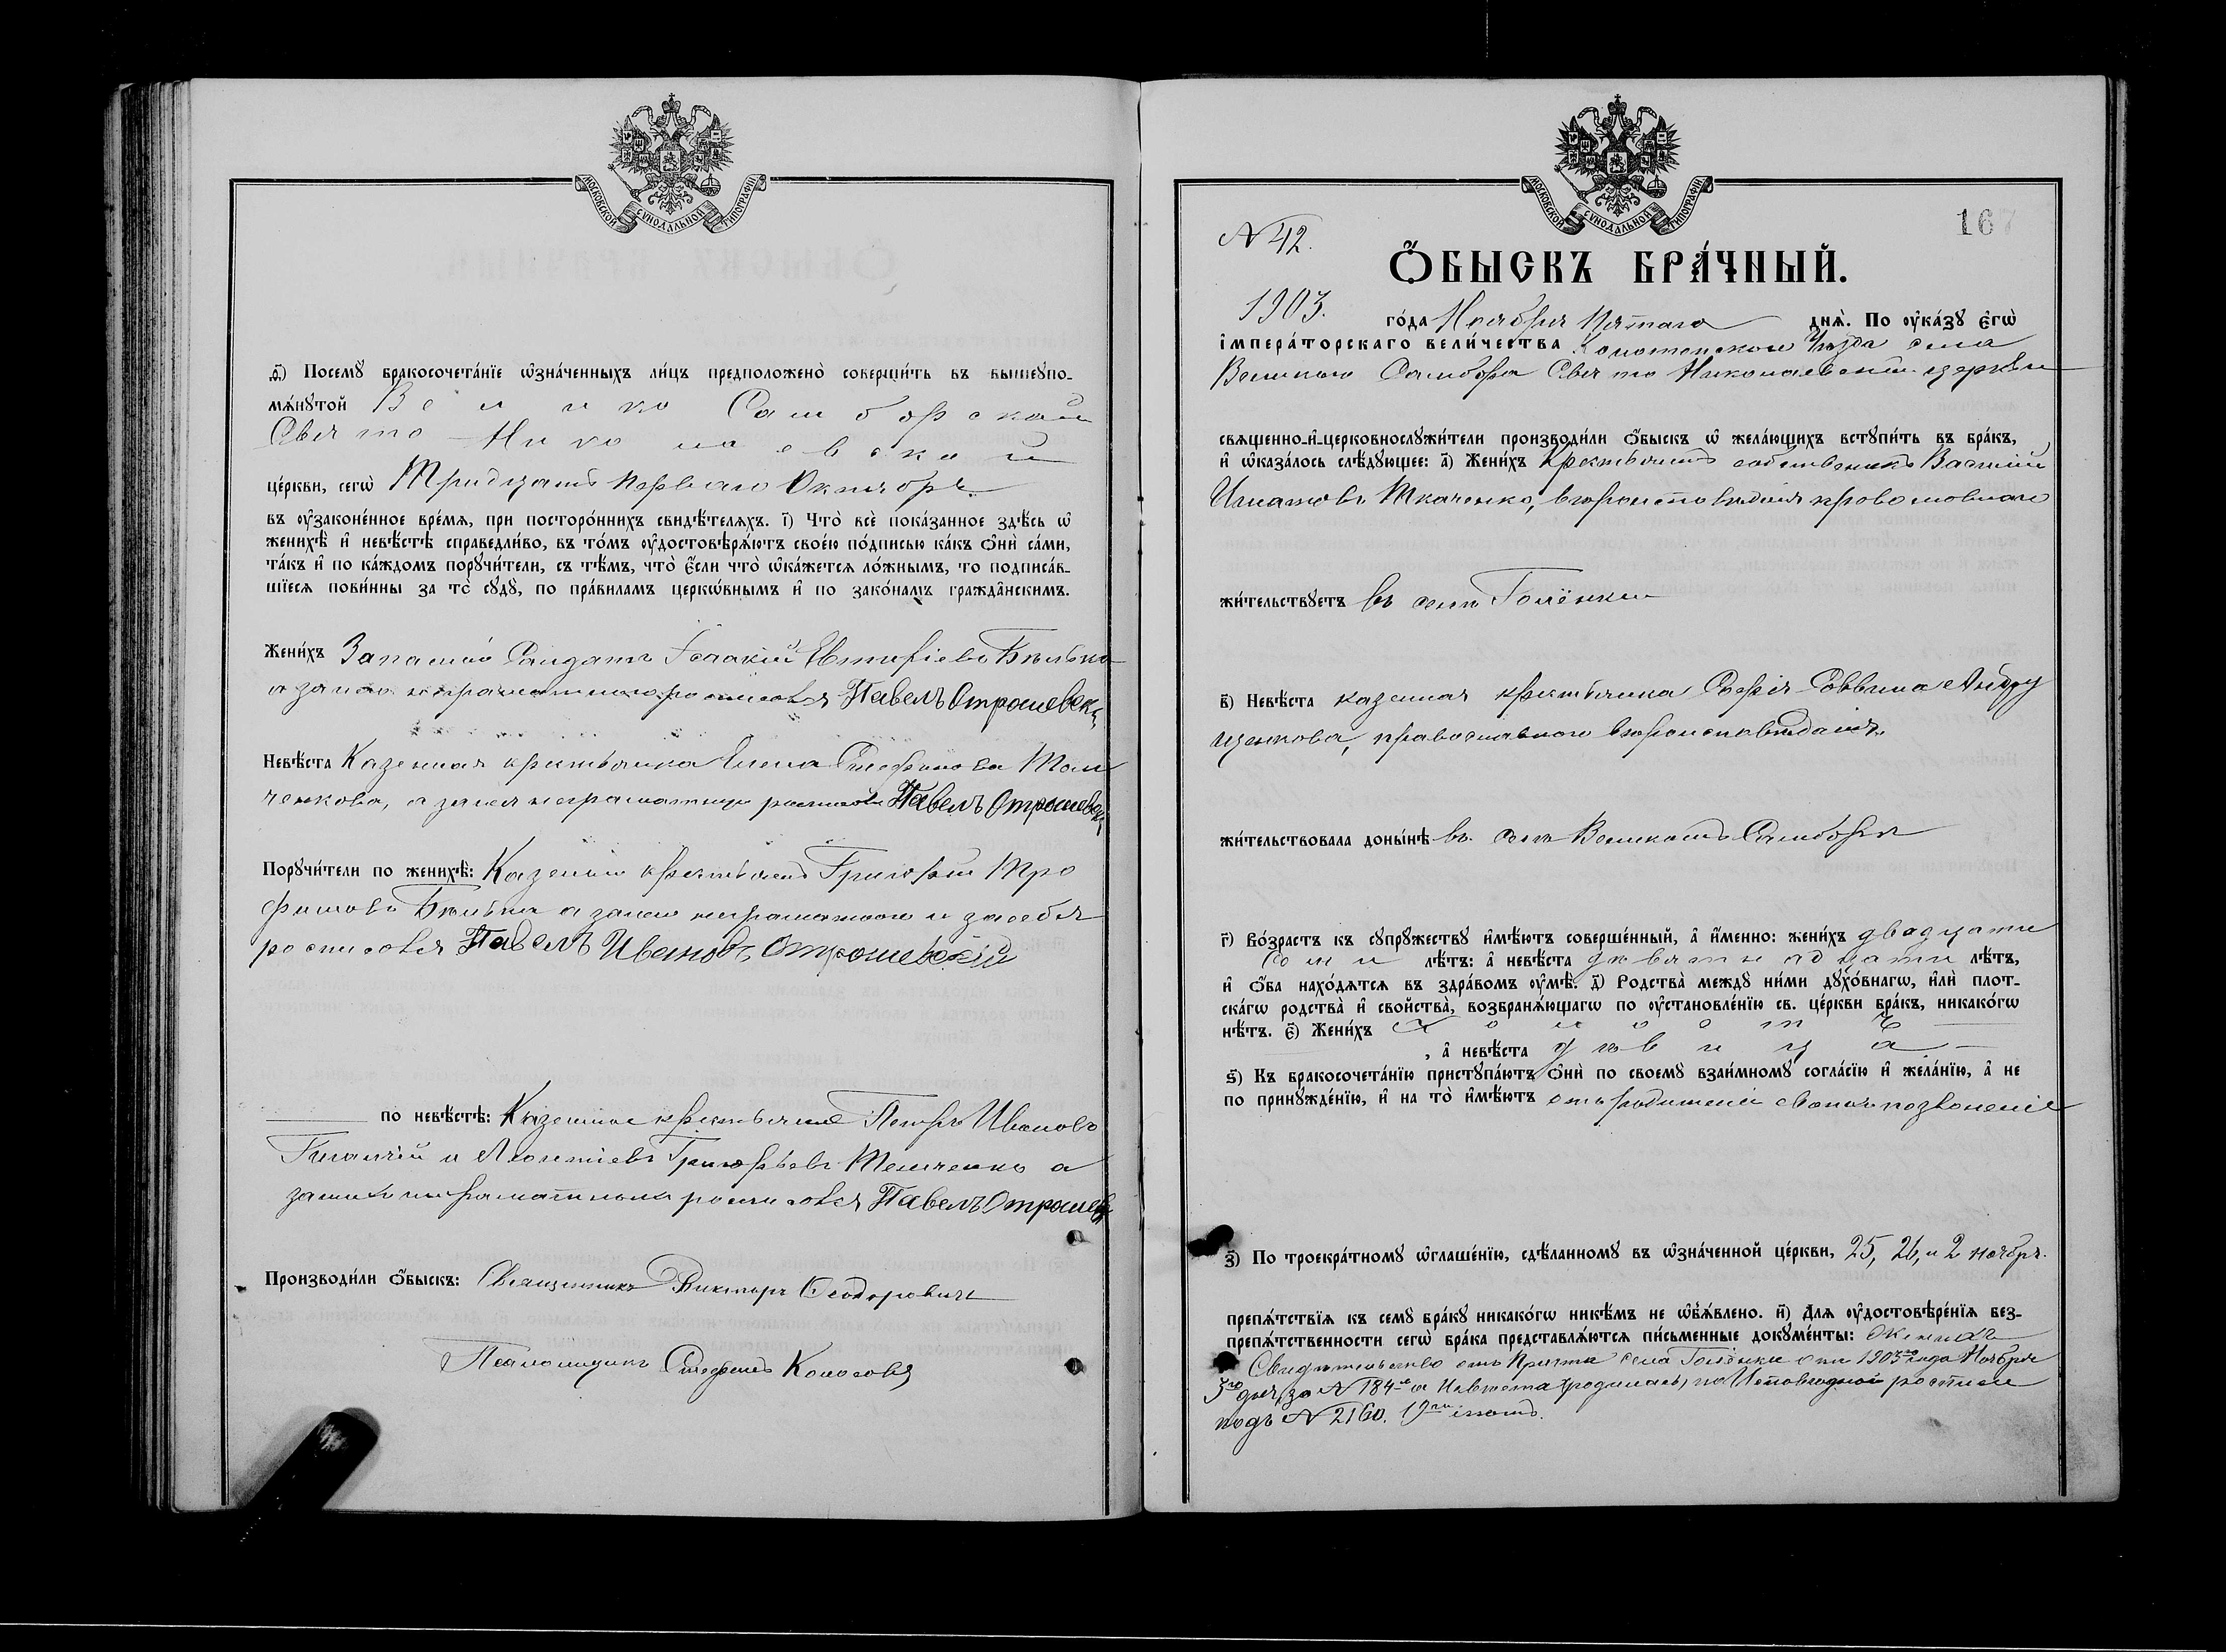 МОСКОВСКОЙ СѴНОДАЛЬНОЙ ТИПОГРАФІИ
ѳ҃) Посемꙋ бракосочета́нїе ѡ҆зна́ченныхъ ли́цъ предположено̀ соверши́ть въ вышеꙋпо-
мѧ́нꙋтой Велико Самборской
Свято-Николаевской
це́ркви, сегѡ̀ Тридцать перваго Октября
въ ѹ҆законе́нное вре́мѧ, при посторо́ннихъ свидѣ́телѧхъ. і҃) Что̀ всѐ пока́занное здѣ́сь ѡ҆
женихѣ̀ и҆ невѣ́стѣ справедли́во, въ то́мъ ѹ҆достовѣрѧ́ютъ свое́ю по́дписью ка́къ ѻ҆нѝ са́ми,
та́къ и҆ по ка́ждомъ порꙋчи́тели, съ тѣ́мъ, что̀ є҆́сли что̀ ѡ҆ка́жетсѧ ло́жнымъ, то подписа́в-
шїесѧ пови́нны за то̀ сꙋдꙋ̀, по пра́виламъ церко́внымъ и҆ по зако́намъ гражда́нскимъ.
Жени́хъ Запасный Солдатъ Исаакій Евтихіевъ Бѣлько
а за него неграмотнаго росписался Павелъ Отрошевскі
Невѣ́ста Казенная крестьянка Елена Стефанова Том
ченкова, а за нея неграмотную росписался Павелъ Отрошевскі
Порꙋчи́тели по женихѣ̀: Казенный крестьянинъ Григорій Тро
фимовъ Бѣлько а за него неграмотнаго и за себя
росписался Павелъ Ивановъ Отрошевскій
по невѣ́стѣ: Казенные крестьяне Петръ Ивановъ
и Леонтіевъ Григорьевъ а
за нихъ неграмотныхъ росписался Павелъ Отрошев
Производи́ли ѻ҆́быскъ: Священникъ Викторъ Ѳеодоровичъ
Псаломщикъ Стефанъ Колосовъ
МОСКОВСКОЙ СѴНОДАЛЬНОЙ ТИПОГРАФІИ
N 42.
167
Ѻ҆́БЫСКЪ БРА́ЧНЫЙ.
1903. го́да Ноября Пятаго днѧ̀. По ѹ҆ка́зꙋ є҆гѡ̀
і҆мпера́торскаго вели́чества Конотопскаго Уѣзда села
Великаго Самбора Свято Николаевской церкви
свѧщенно-и҆-церковнослꙋжи́тели производи́ли ѻ҆́быскъ ѡ҆ жела́ющихъ встꙋпи́ть въ бра́къ,
и҆ ѡ҆каза́лось слѣ́дꙋющее: а҃) Жени́хъ Крестьянинъ собственникъ Василій
Игнатовъ Ткаченко, вѣроисповѣданія православнаго
жи́тельствꙋетъ въ селѣ Голёнки
в҃) Невѣ́ста казенная крестьянка Софія Саввина Андру
щенкова, православнаго вѣроисповѣданія.
жи́тельствовала доны́нѣ въ селѣ Великомъ Самборѣ
г҃) Во́зрастъ къ сꙋпрꙋ́жествꙋ и҆мѣ́ютъ соверше́нный, а҆ и҆́менно: жени́хъ двадцати
семи лѣ́тъ: а҆ невѣ́ста девятнадцати лѣ́тъ,
и҆ ѻ҆́ба нахо́дѧтсѧ въ здра́вомъ ѹ҆мѣ̀. д҃) Родства̀ междꙋ ни́ми дꙋхо́внагѡ, и҆лѝ плот-
ска́гѡ родства̀ и҆ сво́йства, возбранѧ́ющагѡ по ѹ҆становле́нїю св. це́ркви бра́къ, никако́гѡ
нѣ́тъ. є҃) Жени́хъ холостъ
, а҆ невѣ́ста дѣвица
ѕ҃) Къ бракосочета́нїю пристꙋпа́ютъ ѻ҆нѝ по своемꙋ̀ взаи́мномꙋ согла́сїю и҆ жела́нїю, а҆ не
по принꙋжде́нїю, и҆ на то̀ и҆мѣ́ютъ отъ родителей своихъ позволеніе
з҃) По троекра́тномꙋ ѡ҆глаше́нїю, сдѣ́ланномꙋ въ ѡ҆зна́ченной це́ркви, 25, 26, и 2 ноября.
препѧ́тствїѧ къ семꙋ̀ бра́кꙋ никако́гѡ никѣ́мъ не ѡ҆б̾ѧ́влено. и҃) Длѧ ѹ҆достовѣре́нїѧ без-
препѧ́тственности сегѡ̀ бра́ка представлѧ́ютсѧ пи́сьменные докꙋме́нты: о женихѣ
Свидѣтельство отъ Причта села Голёнки отъ 1903го года Ноября
3го дня, за N 184, а Невѣста родилась, по Исповѣдной росписи
подъ N 2160. 19